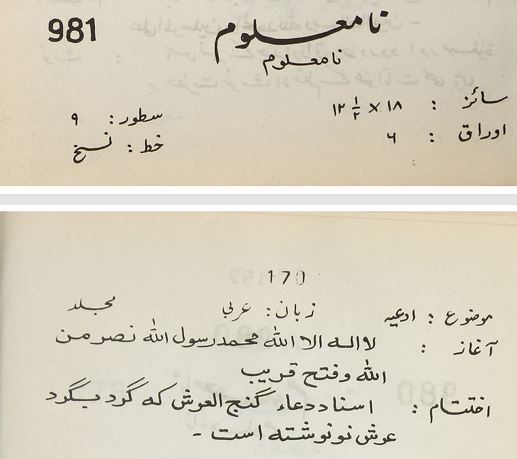 981
نامعلوم
نامعلوم
سائز : ۱۸ × ۱۲ ½ سطور : ۹
اوراق : ۶ خط : نسخ
170
موضوع : ادعیہ زبان : عربی مجلد
آغاز : لا الہ الا اللہ محمد رسول اللہ نصر من
اللہ وفتح قریب
اختتام : اسناد دعاء گنج العرش کہ گرد بگرد
عرش نو نوشتہ است ۔